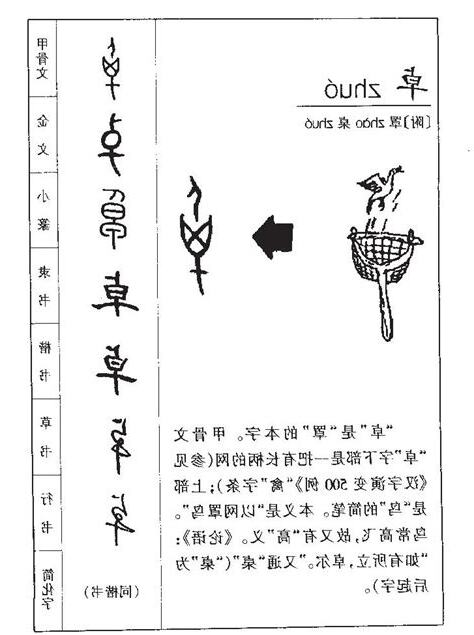 卓 zhuó
〔附〕罩 zhào 桌 zhuó
“卓”是“罩”的本字。甲骨文
“卓”字下部是一把有长柄的网(参见
《汉字演变 500 例》“禽”字条);上部
是“鸟”的简笔。本义是“以网罩鸟”。
鸟常高飞,故又有“高”义。《论语》:
“如有所立,卓尔。”又通“桌”(“桌”为
后起字)。
甲骨文
金文
小篆
隶书
卓
楷书
卓
草书
行书
简化字
(同楷书)